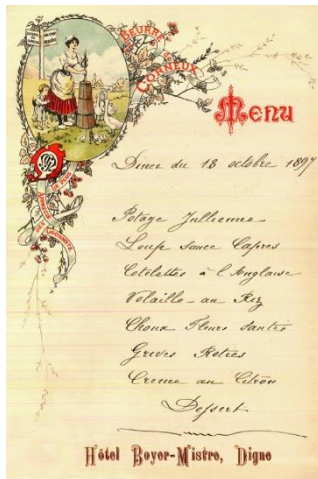 BEURRE DE
CORNEUX
Menu
Diner du 18 octobre 1897
Potage Jullienne
Loup sauce Capres
Cotelettes à l'Anglaise
Volaille au Riz
Choux Fleurs sautés
Grives Roties
Creme au Citron
Dessert
Hôtel Boyer-Mistre, Digne